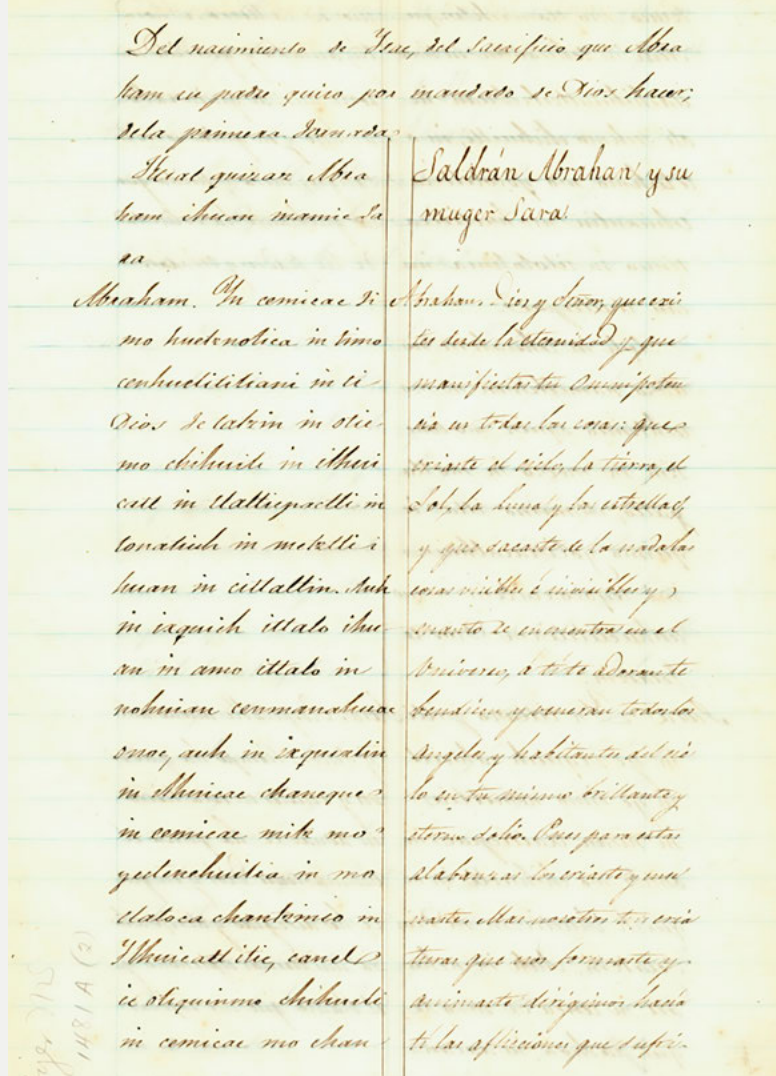 Del nacimiento de Isac, del sacrificio que Abra
ham su padre quiso por mandado de Dios hacer;
dela primera Jornada.
quizaz Abra
ham ihuan inamic Sa
ra
Abraham. Yn cemicac ti
mo huetznotica in timo
cenhuelititiani in ti
Dios te tatzin in otic
mo chihuili in ilhui
catl in tlalticpactli in
tonatiuh in metztli i
huan in citlaltin. Auh
in ixquich ittalo ihu
an in amo ittalo in
nohuian cenmanahuac
onoc, auh in ixquichtin
in Ilhuicac chaneque
in cemicac mitz mo
yectenehuilia in mo
tlatoca chantzinco in
Ilhuicatl itic, canel
ic otiquinmo chihuili
in cemicac mo chan
Saldrán Abrahan y su
muger Sara.
Abrahan. Dios y Señor, que exis
tes desde la eternidad y que
manifiestas tu Omnipoten
cia en todas las cosas: que
criaste el cielo, la tierra, el
Sol, la luna y las estrellas,
y que sacaste de la nada las
cosas visibles é invisibles y
cuanto se encuentra en el
Universo, á ti te adoran te
bendicen y veneran todos los
Angeles y habitantes del cie
lo en tu mismo brillante y
eterno solio. Pues para estas
alabanzas los criaste y
Mas nosotros tus cria
turas que nos formaste y
animaste dirigimos hacia
ti las aflicciones que sufri-
1481 A (2)